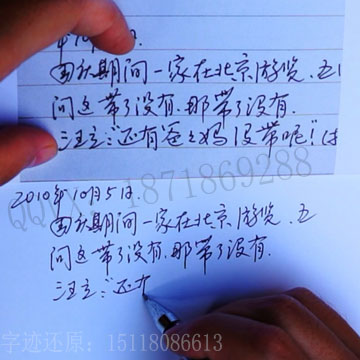 国庆期间一家在北京游览.五
问这带了没有.那带了没有.
汪立:"还有爸爸妈没带呢!"
2010年10月5日
国庆期间一家在北京游览.五
问这带了没有.那带了没有.
汪立:"还
QQVX:1871869288
字迹还原:15118086613